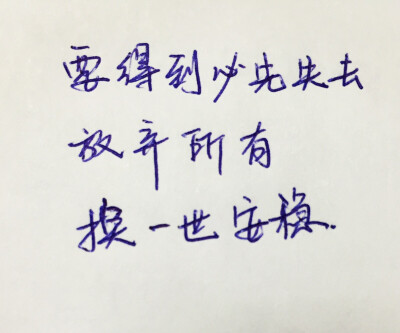 要得到必先失去
放弃所有
换一世安稳.